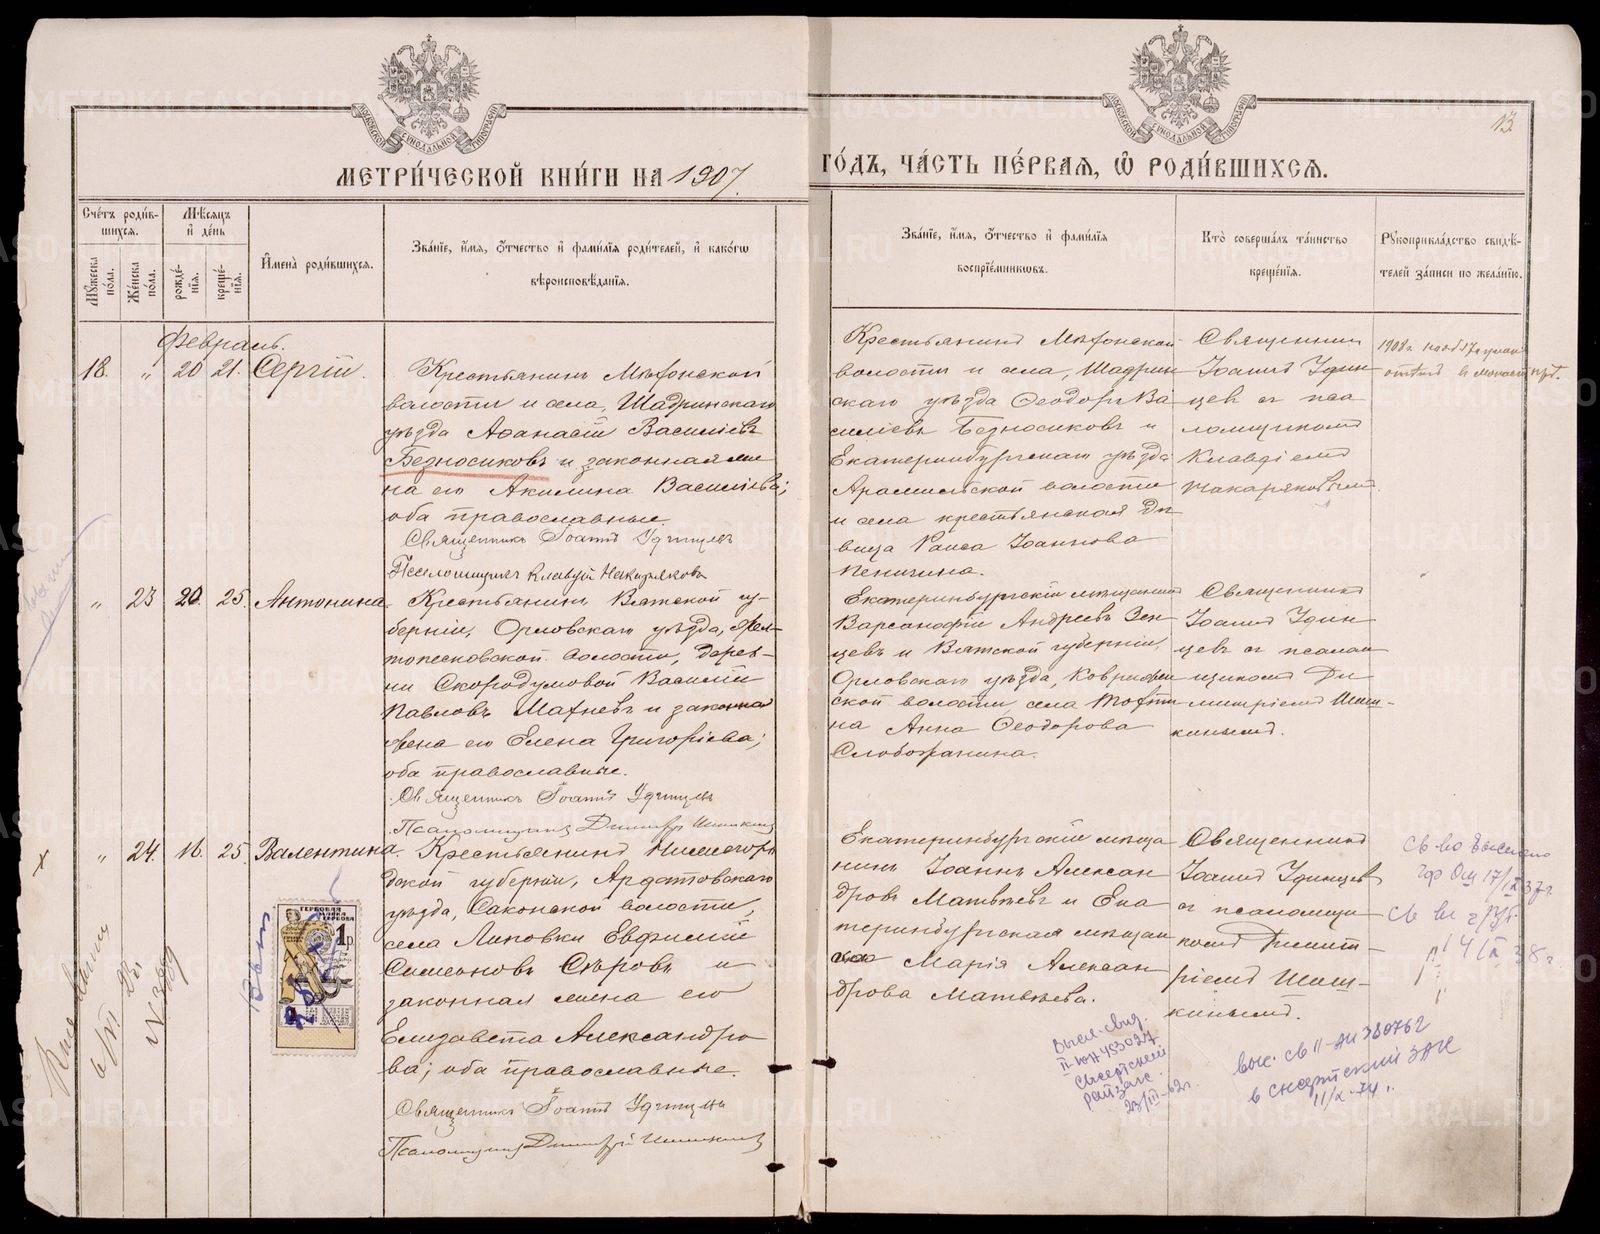 МЕТРИ́ЧЕСКОЙ КНИ́ГИ НА 1907.
ГО́ДЪ, ЧА́СТЬ ПЕ́РВАЯ, Ѡ҆ РОДИ́ВШИХСЯ.
13
Сче́тъ роди́вшихся.
Мꙋ́жеска по́ла.
Же́нска по́ла.
Мѣ́сяцъ и҆ де́нь
рожде́нїя.
креще́нїя.
И҆мена̀ роди́вшихся.
Зва́нїе, и҆́мя, ѻ҆́тчество и҆ фами́лїя роди́телей, и҆ како́гѡ
вѣроисповѣ́данїя.
Зва́нїе, и҆́мя, ѻ҆́тчество и҆ фами́лїя
воспрїе́мниковъ.
Кто̀ соверша́лъ та́инство
креще́нїя.
Рꙋкоприкла́дство свидѣ́-
телей за́писи по жела́нїю.
Февраль.
18. " 20 21. Сергій.
Крестьянинъ Меѳонской
волости и села, Шадринскаго
уѣзда Аѳанасій Василіевъ
Безносиковъ и законная же
на его Акилина Василіева;
оба православные.
Священникъ Іоаннъ Удинцевъ
Псаломщикъ Клавдій Макаряковъ
Крестьянинъ Меѳонской
волости и села, Шадрин
скаго уѣзда Ѳеодоръ Ва
силіевъ Безносиковъ и
Екатеринбургскаго уѣзда
Арамильской волости
и села крестьянская дѣ
вица Раиса Іоаннова
Пеничина.
Священникъ
Іоаннъ Удин
цевъ съ пса
ломщикомъ
Клавдіемъ
Макаряковымъ.
1908 г.
" 23 20. 25. Антонина.
Крестьянинъ Вятской гу-
берніи, Орловскаго уѣзда, Жел-
топесковской волости, дерев-
ни Скородумовой Василій
Павловъ Махневъ и законная
жена его Елена Григоріева;
оба православные.
Священникъ Іоаннъ Удинцевъ
Псаломщикъ Димитрій Шишкинъ
Екатеринбургскій мѣщанинъ
Варсанофій Андреевъ Зен
цевъ и Вятской губерніи,
Орловскаго уѣзда,
ской волости, села
на Анна Ѳеодорова
Слобожанина.
Священникъ
Іоаннъ Удин
цевъ съ псалом
щикомъ Ди
митріемъ Шиш-
кинымъ.
" 24. 16. 25. Валентина.
Крестьянинъ Нижегоро
дской губерніи, Ардатовскаго
уѣзда, Саконской волости,
села Липовки Евфимій
Симеоновъ Сѣровъ и
законная жена его
Елизавета Александро
ва; оба православные.
Священникъ Іоаннъ Удинцевъ
Псаломщикъ Димитрій Шишкинъ
Екатеринбургскій мѣща
нинъ Іоаннъ Алексан
дровъ Матвѣевъ и Ека
теринбургская мѣщан
ская Марія Алексан
дрова Матвѣева.
Священникъ
Іоаннъ Удинцевъ
съ псаломщи
комъ Димит-
ріемъ Шиш-
кинымъ.
1р
N 3989
Высл. свид.
II-ЮН 453027
Сысертский
райзагс.
23/III-62г.
выс. св II-АИ 380762
в Сысертский ЗАГС
11/X-74г.